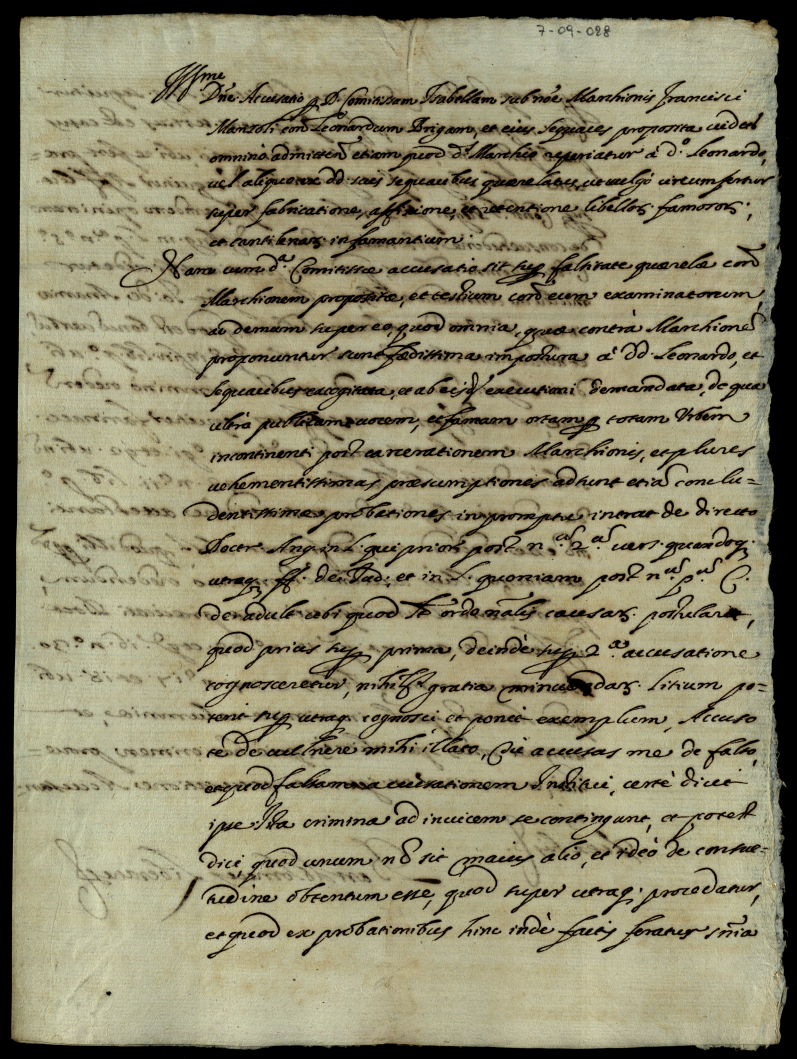 7-09-028
Ill.me
Dne. Accusatio p D. Comitissam Isabellam sub noe Marchionis Francisci
Manzoli con Leonardum Brigam, et eius sequaces proposita videt
omninò admitten etiam quod d. Marchio reperiatur à d.o Leonardo,
vel aliquo ex dd. suis sequacibus querelatus, ut vulgò circumfertur
super fabricatione, affissione, et retentione libellor famosor;
et cantilenar infamantium.
Nam cum d. Comitissæ accusatio sit sup falsitate querelæ con
Marchionem propositæ, et testium con eum examinatorum,
ac demum super eo, quod omnia, quæ contrà Marchione
proponuntur sunt fædissima impostura à dd. Leonardo, et
sequacibus excogitata, et ab eisd executioni demandata, de qua
ultrà publicam vocem, et famam ortam p totam Urbem
incontinenti post carcerationem Marchionis, et plures
vehementissimas præsumptiones adsunt etia conclu=
dentissimæ probationes in promptu intrat de directo
Doctr. Ang. in L. qui prior post n. 2. vers. quandoq.
utraq. ff. de Iud. et in L. quoniam post n. p. C.
de adult. ubi quod lt orde nalis causar postularet,
quod prius sup prima, deinde sup 2.a accusatione
cognosceretur, nihil gratia minuendar litium po=
terit sup utraq. cognosci et ponit exemplum, Accuso
te de vulnere mihi illato, tu accusas me de falso,
et quod falsam accusationem Institui, certè dicit
ipse Ista crimina ad invicem se contingunt, et potest
dici, quod unum no sit maius alio, et ideò de consue=
tudine obtentum esse, quod super utraq. procedatur,
et quod ex probationibus hinc indè factis feratur snia